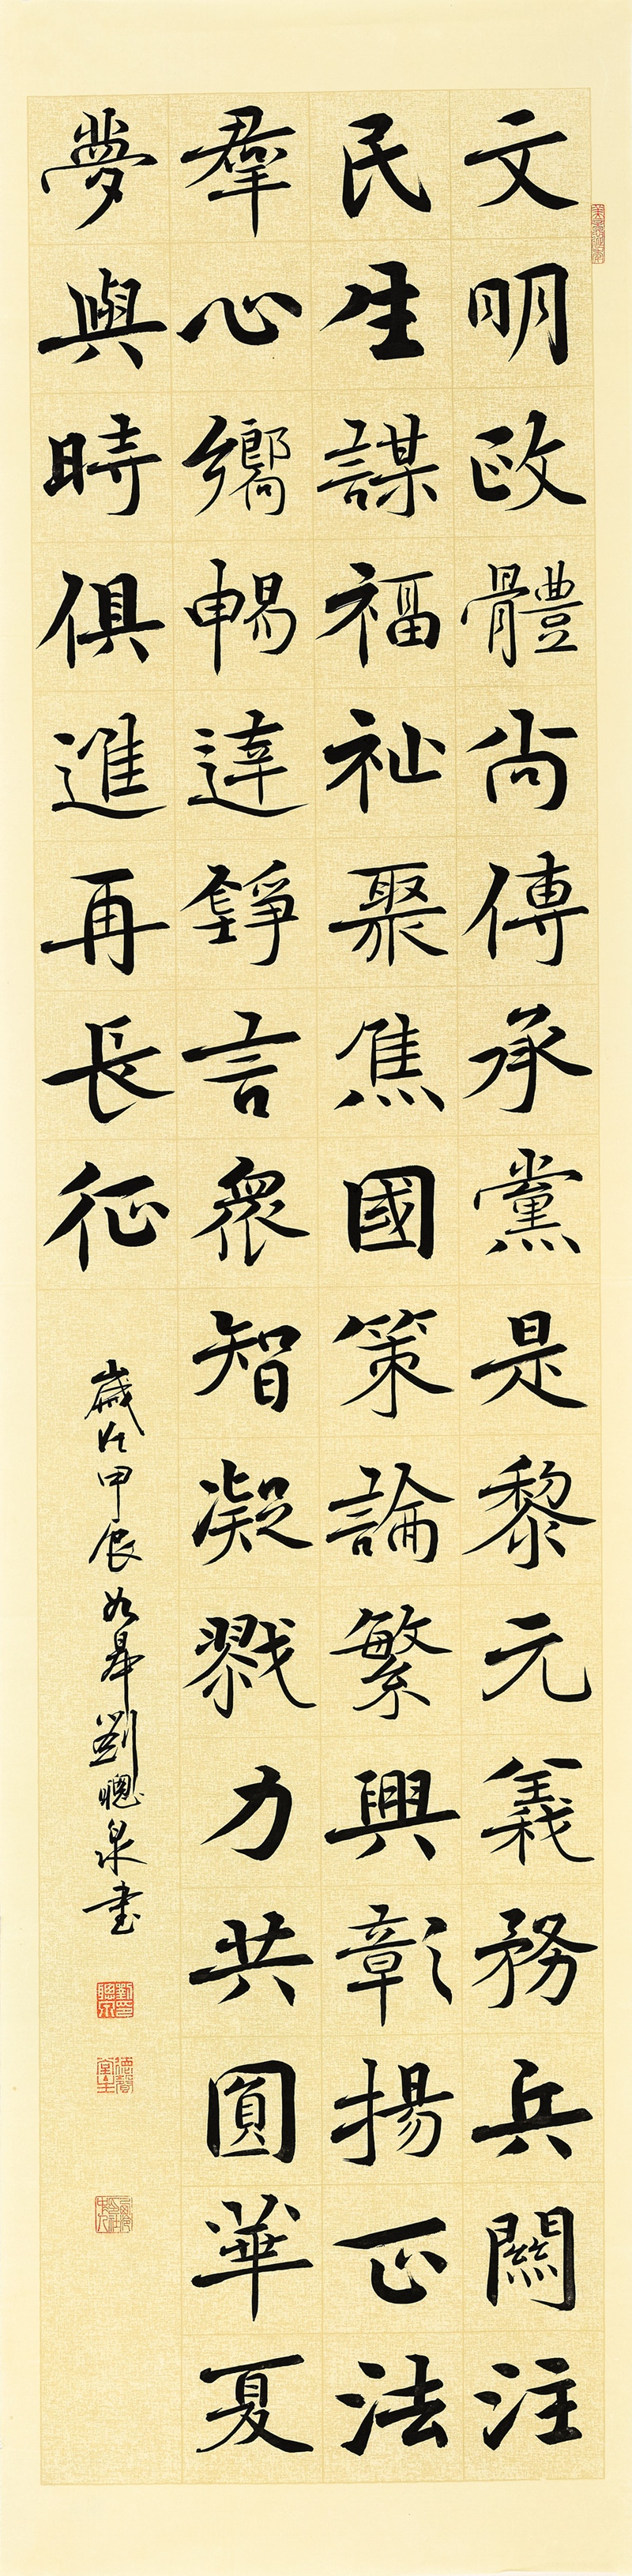 文明政體尚傳承黨是黎元義務兵關注
民生謀福祉聚焦國策論繁興彰揚正法
羣心嚮暢達錚言衆智凝戮力共圓華夏
夢與時俱進再長征
歲次甲辰如皋劉聰泉书